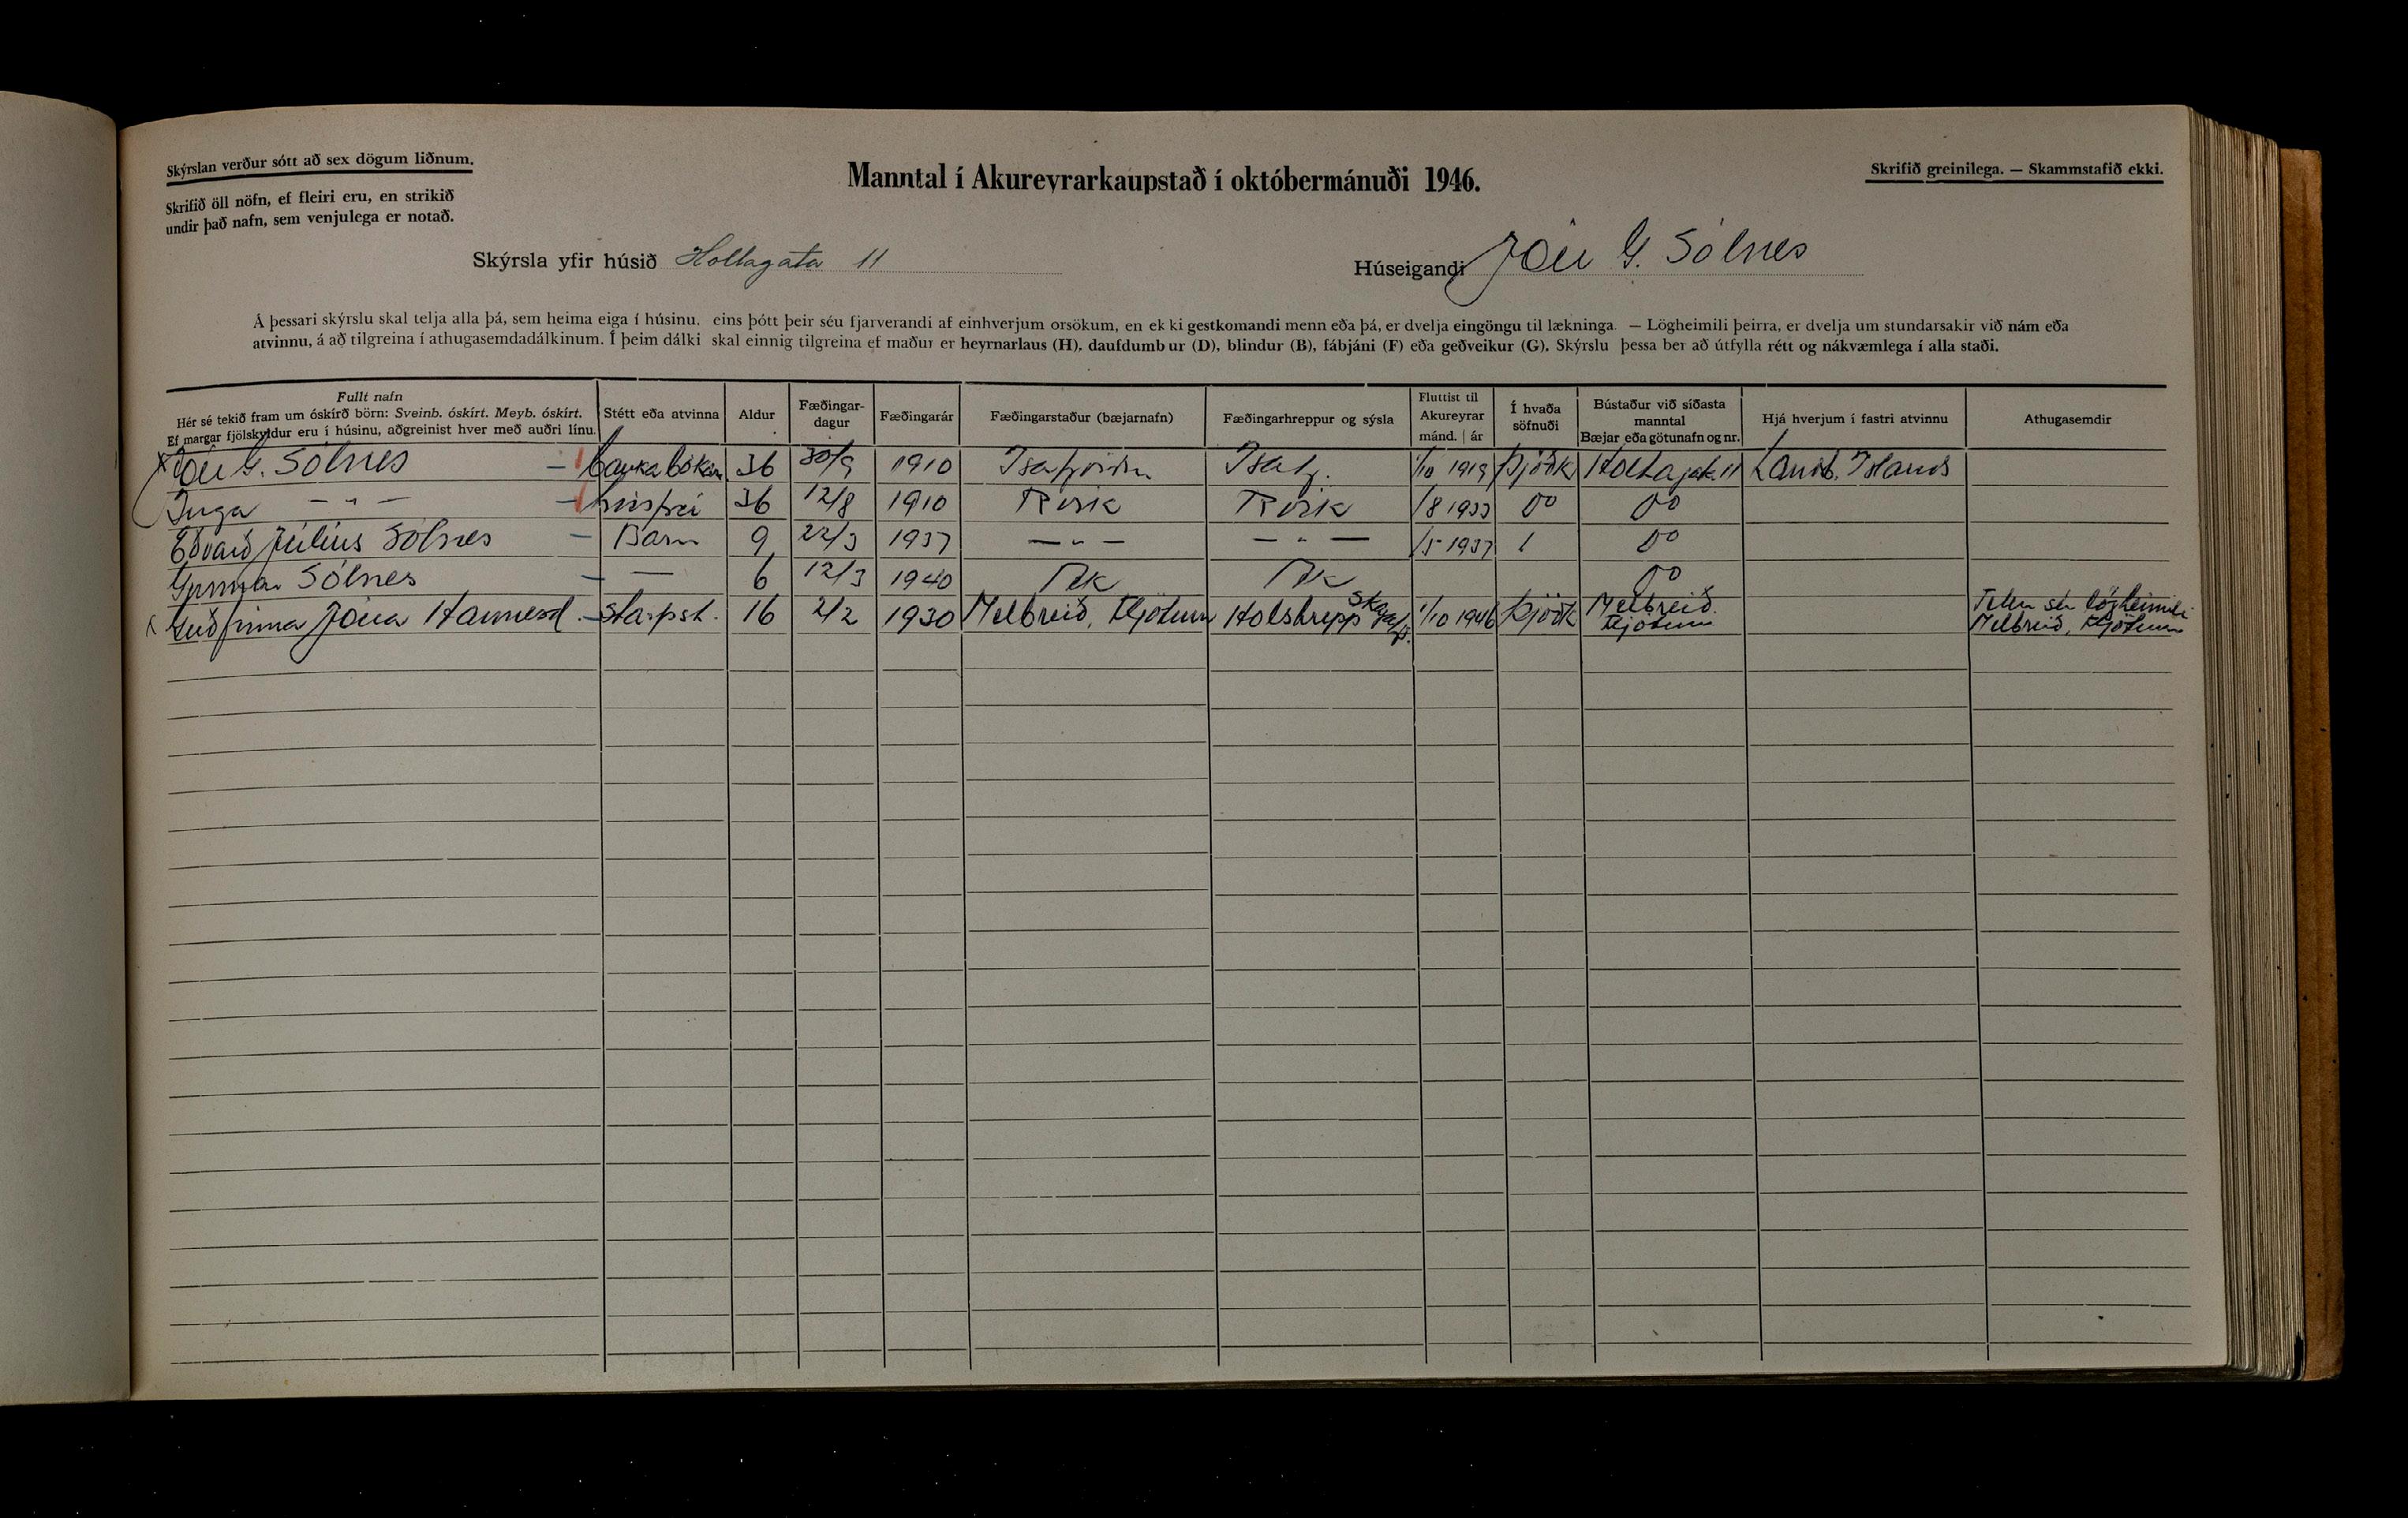 Skýrslan verður sótt að sex dögum liðnum.
Skrifið öll nöfn, ef fleiri eru, en strikið
undir það nafn, sem venjulega er notað.
Manntal í Akureyrarkaupstað í októbermánuði 1946.
Skrifið greinilega. — Skammstafið ekki.
Skýrsla yfir húsið Holtagata 11
Húseigandi Jón G. Sólnes
Á þessari skýrslu skal telja alla þá, sem heima eiga í húsinu, eins þótt þeir séu fjarverandi af einhverjum orsökum, en ek ki gestkomandi menn eða þá, er dvelja eingöngu til lækninga. — Lögheimili þeirra, er dvelja um stundarsakir við nám eða
atvinnu, á að tilgreina í athugasemdadálkinum. Í þeim dálki skal einnig tilgreina ef maður er heyrnarlaus (H), daufdumb ur (D), blindur (B), fábjáni (F) eða geðveikur (G). Skýrslu þessa ber að útfylla rétt og nákvæmlega í alla staði.
Fullt nafn
Hér sé tekið fram um óskírð börn: Sveinb. óskírt. Meyb. óskírt.
Ef margar fjölskyldur eru í húsinu, aðgreinist hver með auðri línu.
Stétt eða atvinna
Aldur
Fæðingar-
dagur
Fæðingarár
Fæðingarstaður (bæjarnafn)
Fæðingarhreppur og sýsla
Fluttist til
Akureyrar
mánd. | ár
Í hvaða
söfnuði
Bústaður við síðasta
manntal
Bæjar eða götunafn og nr.
Hjá hverjum í fastri atvinnu
Athugasemdir
Jón G. Sólnes — bankabókari 36 30/9 1910 Ísafjörður Ísafj. 1/10 1919 Þjóðk Holtagat. 11 Landsb. Íslands
Inga — " — — húsfrú 36 12/8 1910 Rvík Rvík /8 1933 Do Do
Eðvarð Júlíus Sólnes — Barn 9 22/3 1937 — " — — " — /5 1937 Do
Gunnar Sólnes — — 6 12/3 1940 Ak Ak Do
Guðfinna Jóna Hannesd. — starfsst. 16 2/2 1930 Melbreið, Fljótum Holshrepp Skagafj. 1/10 1946 Þjóðk Melbreið. Fljótum Telur sér lögheimili Melbreið, Fljótum